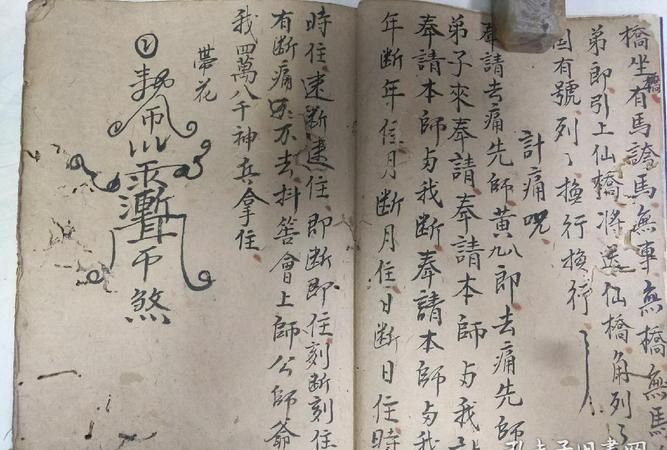 橋坐有馬誇馬無車無橋無馬
橋
弟即引上仙橋將送仙橋角列了
因有號列了換行換行了
計痛咒
奉請去痛先師黃九郎去痛先師
八
弟子來奉請奉請本師與我計
奉請本師與我斷奉請本師與我
年斷年住月斷月住日斷日住時
時住速斷速住即斷即住刻斷刻住
有斷痛不去抖答會上師公師爺
我四萬八千神兵拿住
帶花
2
煞